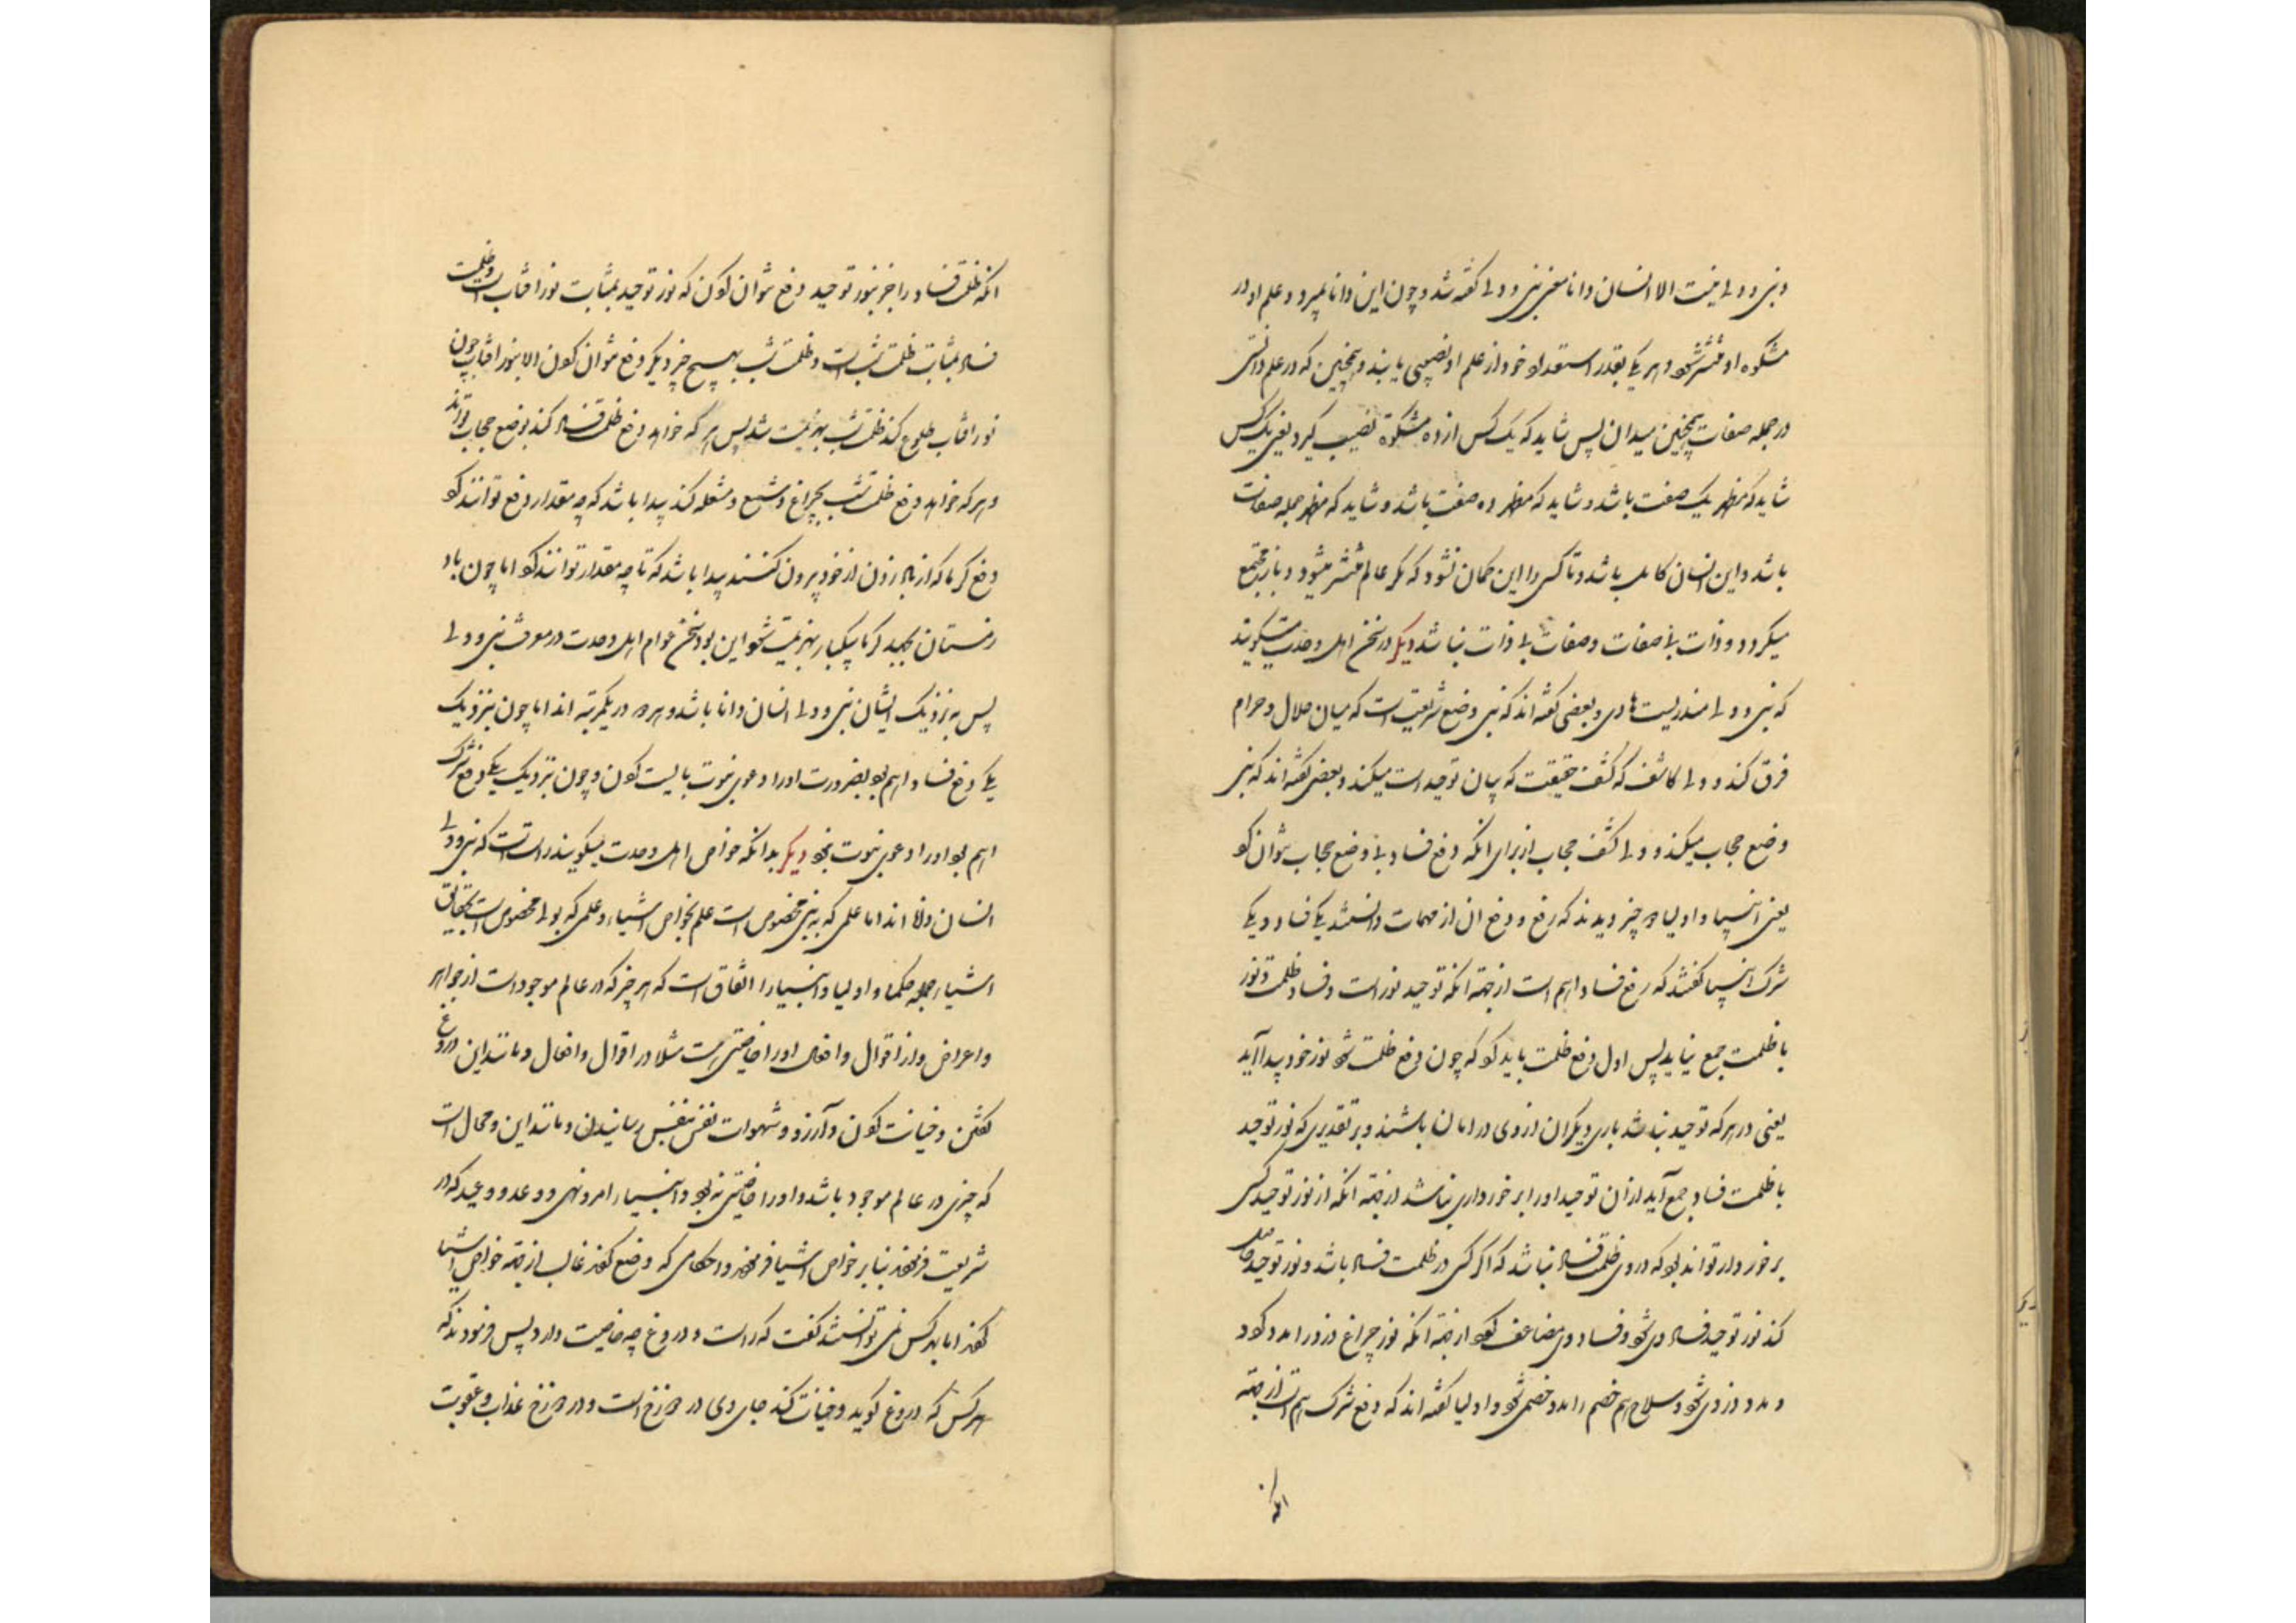 و نبی و ولی نیست الا انسان دانا معنی نبی و ولی گفته شد و چون این دانا بمیرد و علم او در
مشکوه او منتشر شود و هر یکی بقدر استعداد خود از علم او نصیبی یابند و همچنین که در علم دانستی
در جمله صفات همچنین میدان پس شاید که یک کس از ده مشکوة نصیب گیرد یعنی یک کس
شاید که مظهر یک صفت باشد و شاید که مظهر ده صفت باشد و شاید که مظهر جمله صفات
باشد و این انسان کامل باشد و تا کسی را این گمان نشود که مگر عالم منتشر میشود و باز مجتمع
میگردد و ذات بی صفات و صفات بی ذات نباشد دیگر در سخن اهل وحدت میگویند
که نبی و ولی منذر یست هادی و بعضی گفته اند که نبی وضع شریعت است که میان حلال و حرام
فرق کند و ولی کاشف که کشف حقیقت که بیان توحید است میکند و بعضی گفته اند که نبی
وضع حجاب میکند و ولی کشف حجاب از برای انکه دفع فساد بی وضع حجاب نتوان کرد
یعنی انبیا و اولیا دو چیز دیدند که رفع و دفع ان از مهمات دانستند یکی فساد و یکی
شرک انبیا گفتند که رفع فساد اهم است از جهة انکه توحید نور است و فساد ظلمت و نور
با ظلمت جمع نیاید پس اول دفع ظلمت باید کرد که چون دفع ظلمت شود نور خود پیدا آید
یعنی در هر که توحید نباشد باری دیگران از وی در امان باشند و بر تقدیری که نور توحید
با ظلمت فساد جمع آید از ان توحید او را برخورداری نباشد از جهة انکه از نور توحید کسی
برخوردار تواند بود که در وی ظلمت فساد نباشد که اگر کسی در ظلمت فساد باشد و نور توحید حاصل
کند نور توحید فساد وی شود و فساد وی مضاعف گردد از جهة انکه نور چراغ دزد را مدد کرد
و مدد دزدی شود و سلاح هم خصم را مدد خصمی شود و اولیا گفته اند که دفع شرک اهم است از جهة
انکه
انکه ظلمت فساد را جز بنور توحید دفع نتوان کردن که نور توحید بمثابت نور افتاب است و ظلمت
فساد بمثابت ظلمت شب است و ظلمت شب بهیچ چیز دیگر دفع نتوان کردن الا بنور افتاب چون
نور افتاب طلوع کند ظلمت شب بهزیمت شد پس هر که خواهد دفع ظلمت فساد کند بوضع حجاب تواند
و هر که خواهد دفع ظلمت شب بچراغ و شمع و مشعله کند پیدا باشد که چه مقدار دفع توانند کرد
دفع گرما که از باد زدن از خود بیرون کنند پیدا باشد که تا چه مقدار توانند کرد اما چون باد
زمستان بجهد گرما بیکبار بهزیمت شود این بود سخن عوام اهل وحدت در معرفت نبی و ولی
پس به نزدیک ایشان نبی و ولی انسان دانا باشد و هر دو در یکمرتبه اند اما چون بنزدیک
یکی دفع فساد اهم بود بضرورت او را دعوی نبوت بایست کردن و چون بنزدیک یکی دفع شرک
اهم بود او را دعوی نبوت نبود دیگر بدانکه خواص اهل وحدت میگویند راست است که نبی و ولی
انسان دانا اند اما علمی که به نبی مخصوص است علم بخواص اشیاء و علمی که بولی مخصوص است بحقایق
اشیاء جمله حکما و اولیا و انبیا را اتفاق است که هر چیز که در عالم موجود است از جواهر
و اعراض و از اقوال و افعال او را خاصیتی هست مثلا در اقوال و افعال و مانند این دروغ
گفتن و خیانت کردن و آرزو و شهوات نفس بنفس رسانیدن و مانند این و محال است
که چیزی در عالم موجود باشد و او را خاصیتی نبود و انبیاء امر و نهی و وعد و وعید که در
شریعت فرمودند بنا بر خواص اشیا فرمودند و احکامی که وضع کردند غالب از جهة خواص اشیا
کردند اما بهر کس نمی توانستند گفت که راست و دروغ چه خاصیت دارد پس فرمودند که
هر کس که دروغ گوید و خیانت کند جای وی در دوزخ است و در دوزخ عذاب و عقوبت